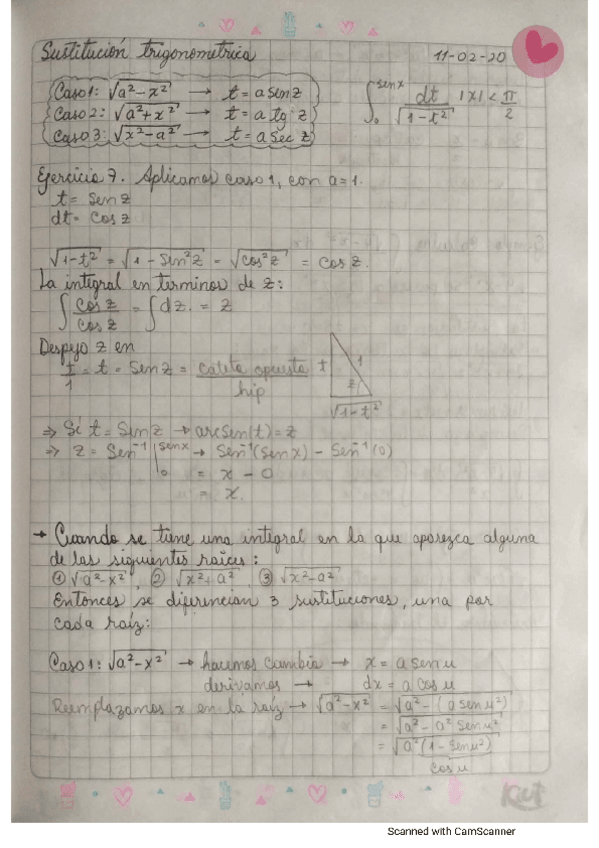 Sustitución trigonometrica 11-02-20
Caso 1: √a²-x² → t = a sen z
Caso 2: √a²+x² → t = a tg z
Caso 3: √x²-a² → t = a sec z
∫₀^senx dt/√1-t² |x| < π/2
Ejercicio 7. Aplicamos caso 1, con a=1.
t = sen z
dt = cos z
√1-t² = √1-sen²z = √cos²z = cos z.
La integral en terminos de z:
∫ cos z/cos z = ∫ dz. = z
Despejo z en
t/1 = t = sen z = cateto opuesto/hip
t 1 z √1-t²
⇒ Si t = sen z → arcsen(t) = z
⇒ z = sen⁻¹ |₀^senx → sen⁻¹(senx) - sen⁻¹(0)
= x - 0
= x.
→ Cuando se tiene una integral en la que aparezca alguna
de las siguientes raíces:
① √a²-x², ② √x²+a² ③ √x²-a²
Entonces se diferencian 3 sustituciones, una por
cada raíz:
Caso 1: √a²-x² → hacemos cambio → x = a sen u
derivamos → dx = a cos u
Reemplazamos x en la raíz → √a²-x² = √a²-(a sen u²)
= √a² - a² sen u²
= √a²(1-sen u²)
cos u
Kut
Scanned with CamScanner